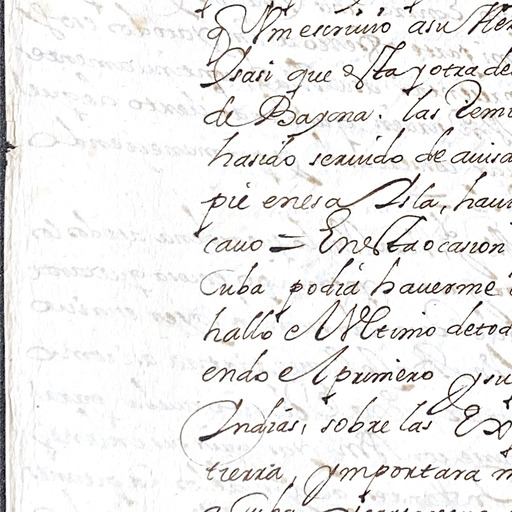 q Vm escriuio a su Her
Isasi que esta y otra de
de Bayona. las Remi
hasido seruido de auisa
pie en esa Isla, hau
cauo = En esta ocasion
Cuba podia hauerme
hallo el Vltimo de tod
endo el primero q su
Indias, sobre las Ex
tierra, ymportara m